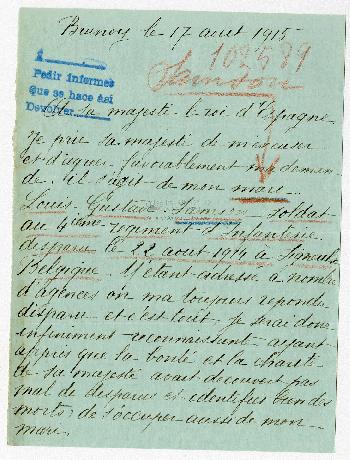 Brunoy le 17 aout 1915
102589
A
Pedir informes
Que se hace así
Devolver
A sa majesté le roi d'Espagne
Je prie sa majesté de m'excuser
et d'agreer favorablement ma deman
de il s'agit de mon mari
Louis Gustave soldat
au 4ieme regiment d'Infanterie
disparu le 22 aout 1914 a
Belgique. M'etant adressé a nombre
d'agences on ma toujours repondu
disparu et c'est tout je serai donc
infiniment reconnaissante ayant
appris que la bonté et la charité
de sa majesté avait decouvert pas
mal de disparus et identifiés bien des
morts de s'occuper aussi de mon
mari